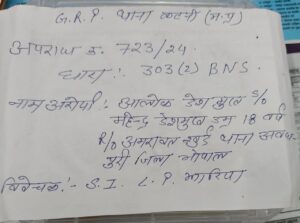 G.R.P. थाना कटनी (म.प्र)
अपराध क्र. 723/24
धारा:- 303(2) BNS
नाम आरोपी:- आलोक देशमुख S/o
महेन्द्र देशमुख उम्र 18 वर्ष
R/o अमरावत खुर्द थाना अवध-
पुरी जिला भोपाल
विवेचक:- S.I. L.P. झारिया